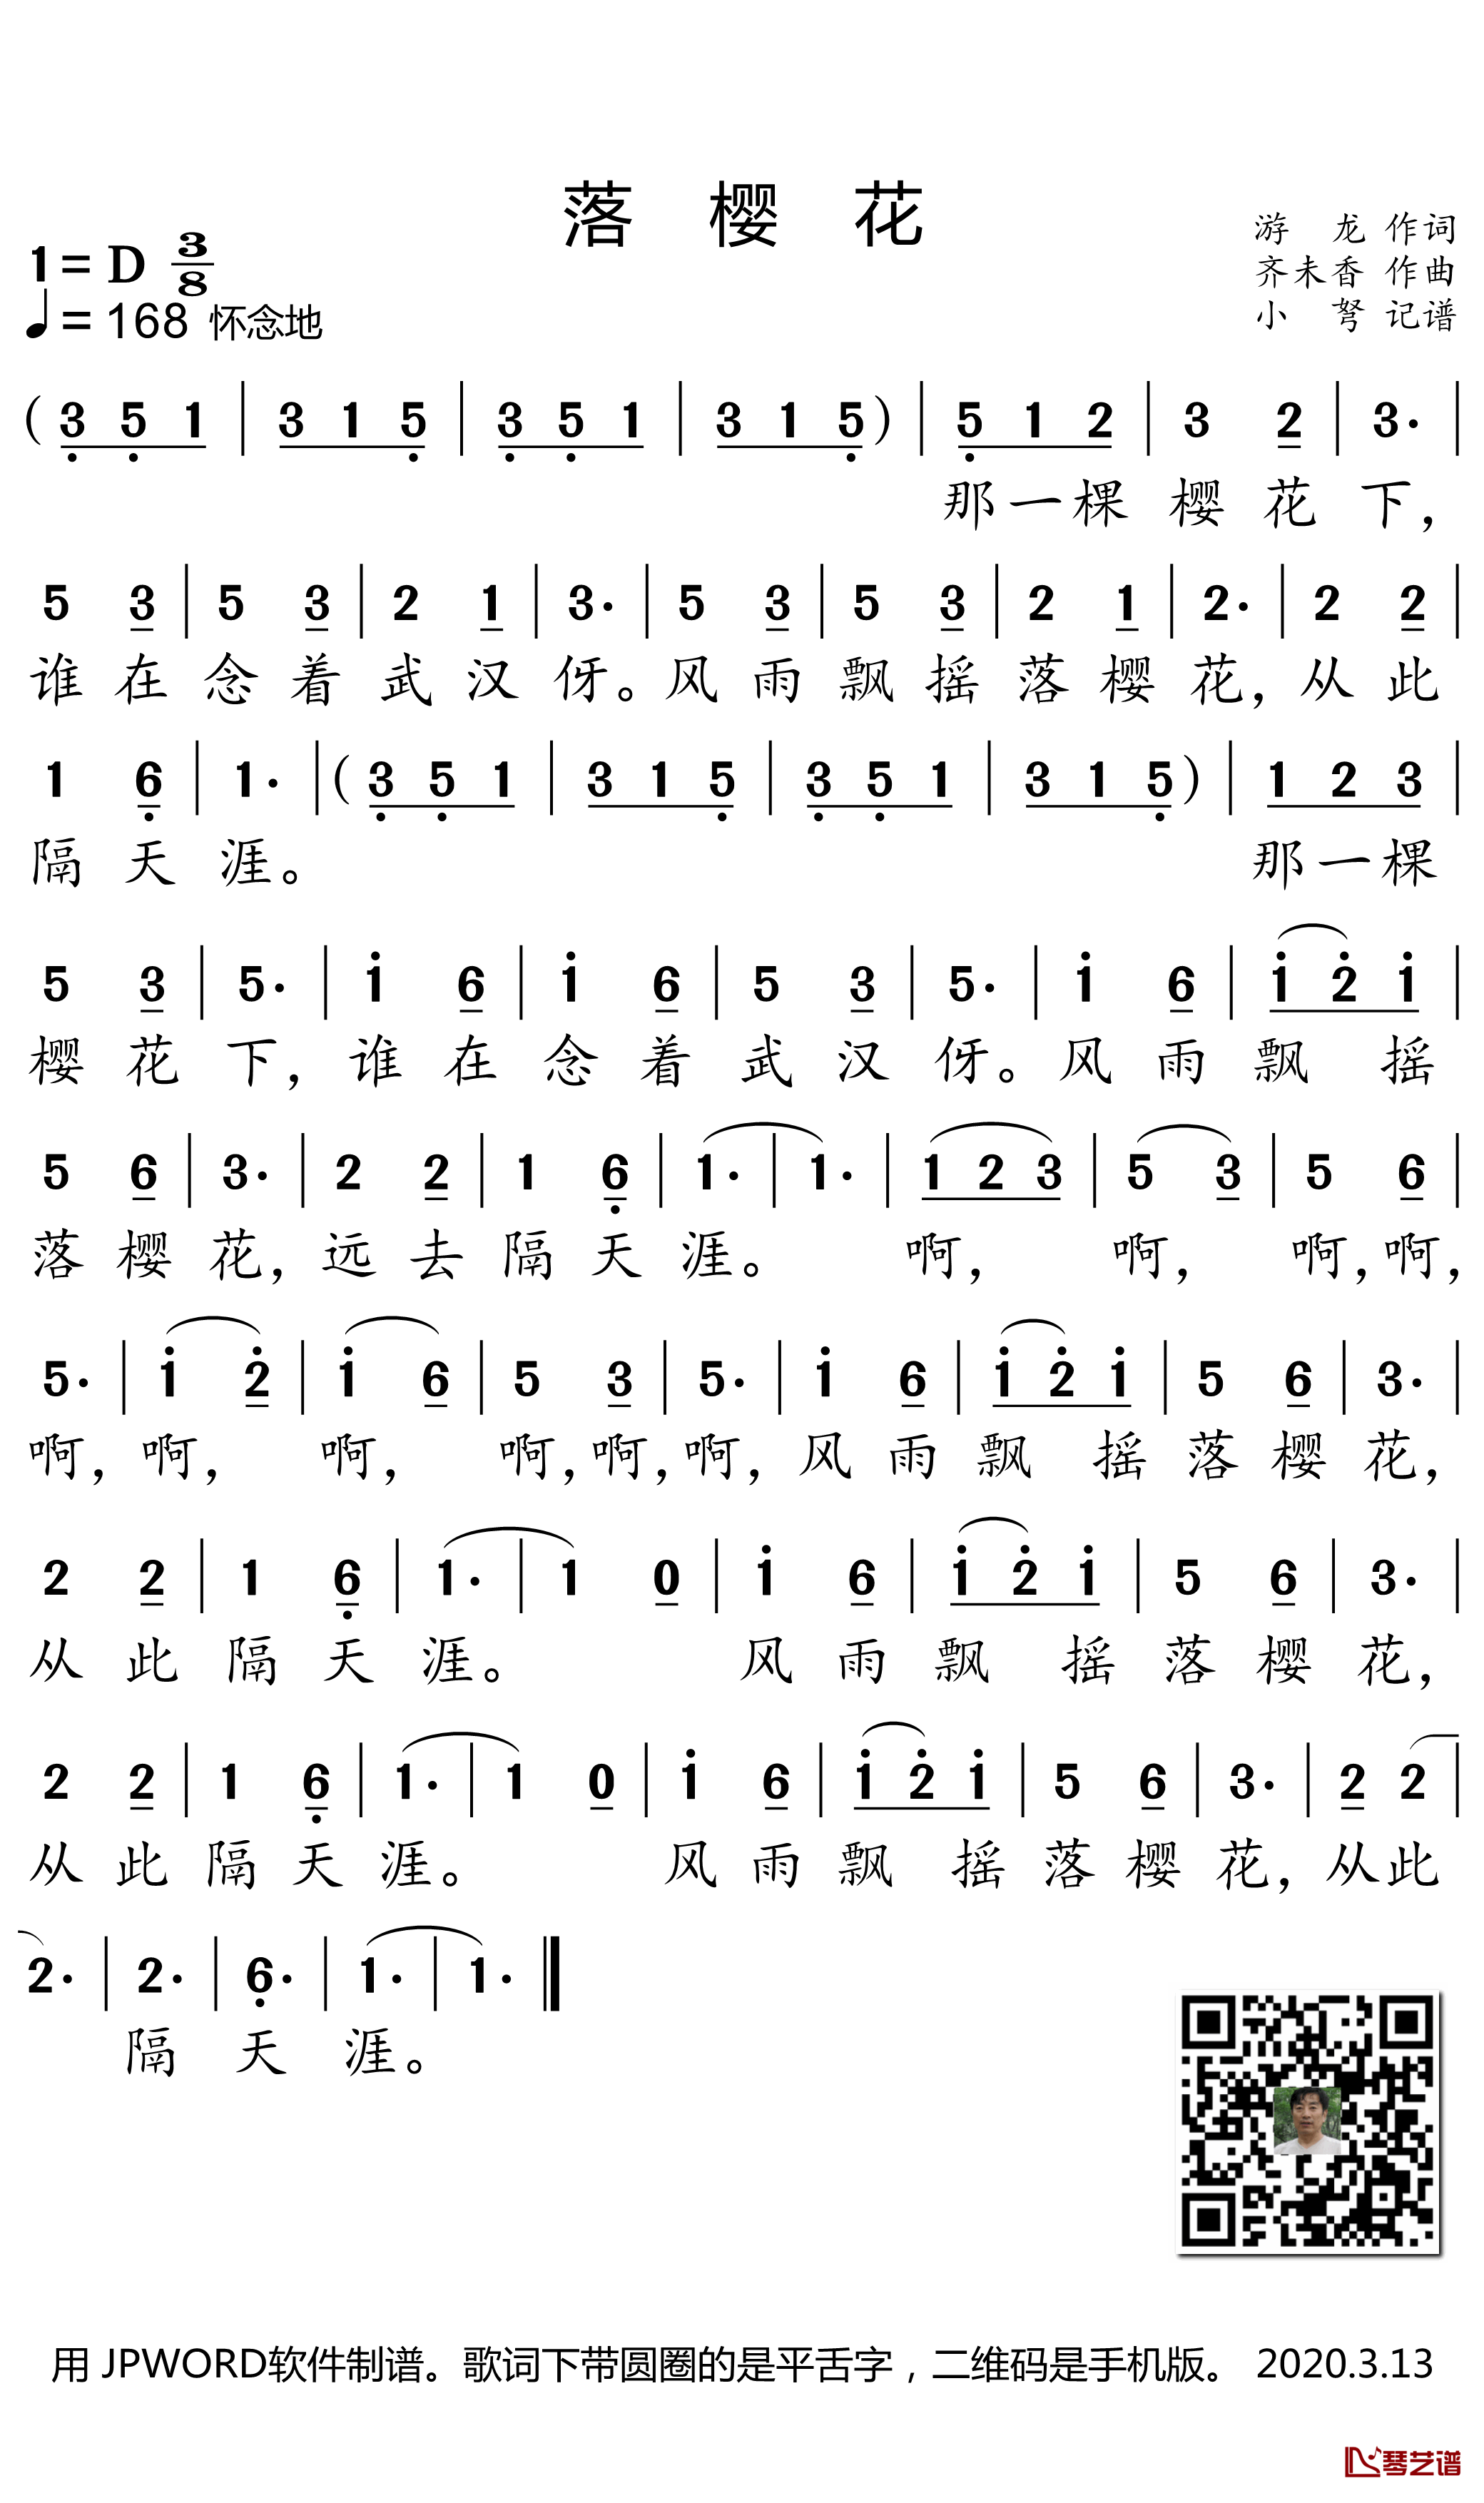 落 樱 花
1=D 3/8
♩=168 怀念地
游 龙 作词
齐未香 作曲
小 弩 记谱
(3̣ 5̣ 1 | 3 1 5̣ | 3̣ 5̣ 1 | 3 1 5̣) | 5̣ 1 2 | 3 2 | 3· |
那一棵 樱 花 下，
5 3 | 5 3 | 2 1 | 3· | 5 3 | 5 3 | 2 1 | 2· | 2 2 |
谁 在 念 着 武 汉 伢。风 雨 飘 摇 落 樱 花，从 此
1 6̣ | 1· | (3̣ 5̣ 1 | 3 1 5̣ | 3̣ 5̣ 1 | 3 1 5̣) | 1 2 3 |
隔 天 涯。 那一棵
5 3 | 5· | 1̇ 6 | 1̇ 6 | 5 3 | 5· | 1̇ 6 | 1̇ 2̇ 1̇ |
樱 花 下，谁 在 念 着 武 汉 伢。风 雨 飘 摇
5 6 | 3· | 2 2 | 1 6̣ | 1· | 1· | 1 2 3 | 5 3 | 5 6 |
落 樱 花，远 去 隔 天 涯。 啊， 啊， 啊，啊，
5· | 1̇ 2̇ | 1̇ 6 | 5 3 | 5· | 1̇ 6 | 1̇ 2̇ 1̇ | 5 6 | 3· |
啊，啊， 啊， 啊，啊，啊，风 雨 飘 摇 落 樱 花，
2 2 | 1 6̣ | 1· | 1 0 | 1̇ 6 | 1̇ 2̇ 1̇ | 5 6 | 3· |
从 此 隔 天 涯。 风 雨 飘 摇 落 樱 花，
2 2 | 1 6̣ | 1· | 1 0 | 1̇ 6 | 1̇ 2̇ 1̇ | 5 6 | 3· | 2 2 |
从 此 隔 天 涯。 风 雨 飘 摇 落 樱 花，从此
2· | 2· | 6̣· | 1· | 1· ‖
隔 天 涯。
用 JPWORD软件制谱。歌词下带圆圈的是平舌字，二维码是手机版。 2020.3.13
琴艺谱